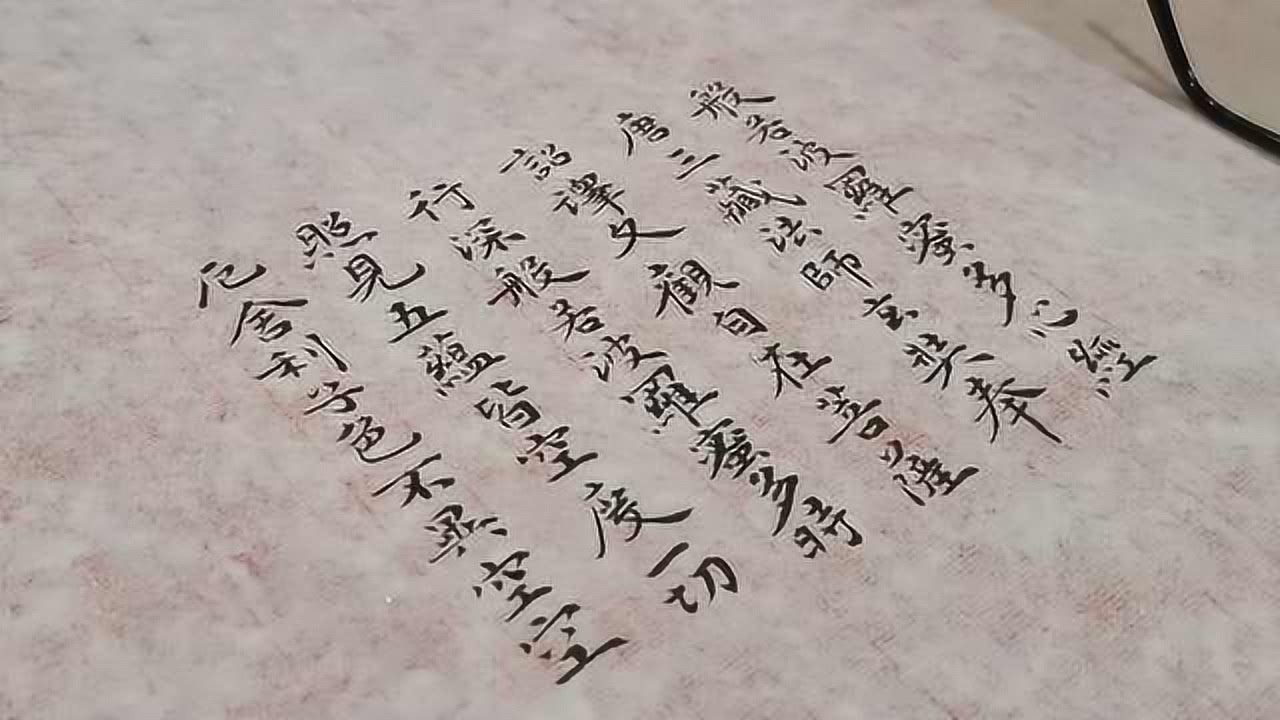 般若波羅蜜多心經
唐三藏法師玄奘奉
詔譯文觀自在菩薩
行深般若波羅蜜多時
照見五蘊皆空度一切
厄舍利子色不異空空